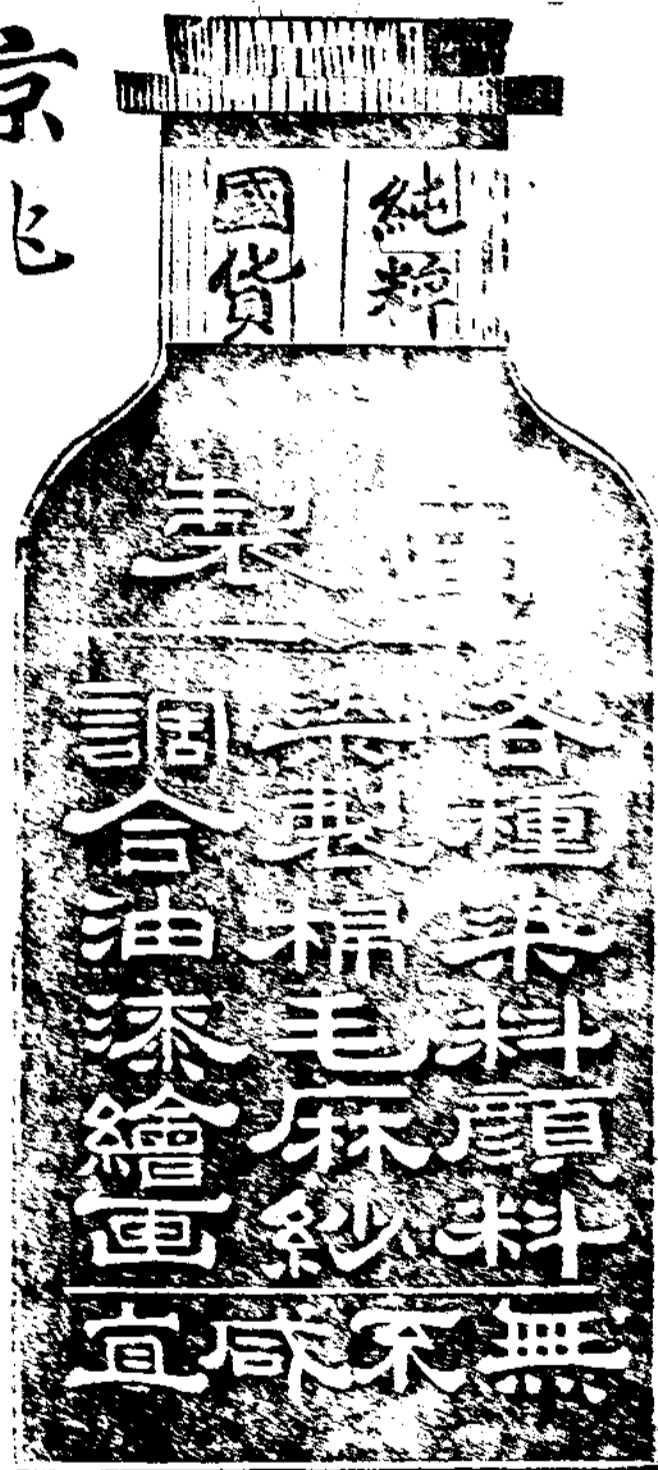 純粹
國貨
製
各種染料顏料
染製棉毛麻紗
調合油漆繪畫
無不咸宜
京